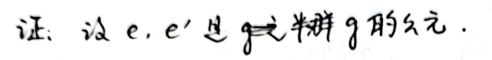 证: 设 e, e' 是半群 g 的幺元.